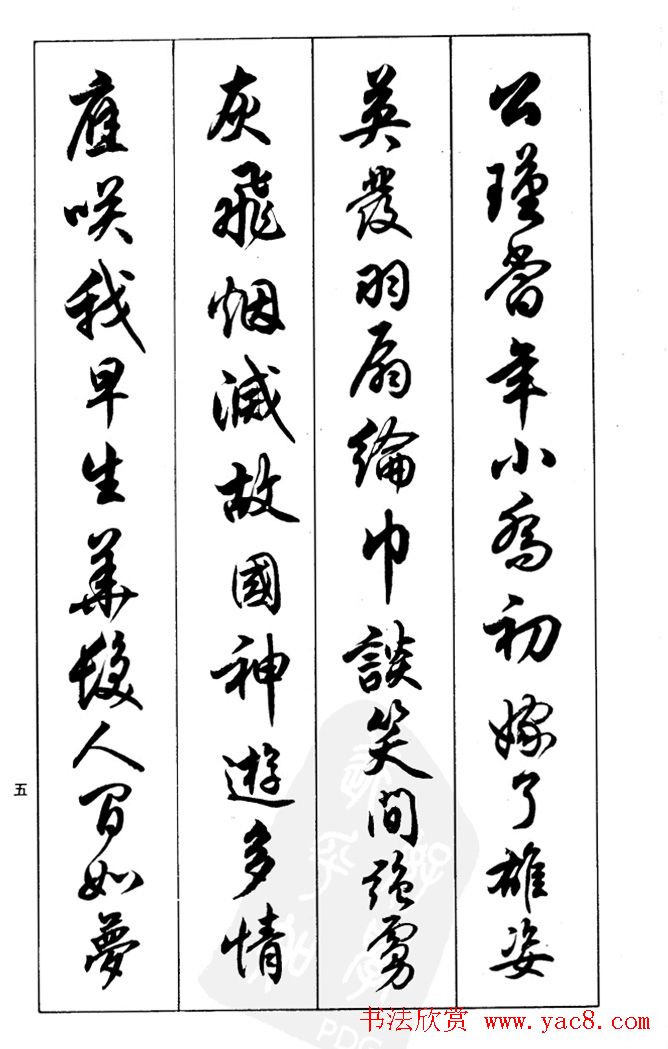 公瑾當年小喬初嫁了雄姿
英發羽扇綸巾談笑間強虜
灰飛烟滅故國神遊多情
應咲我早生華髮人間如夢
五
PDG
书法欣赏 www.yac8.com